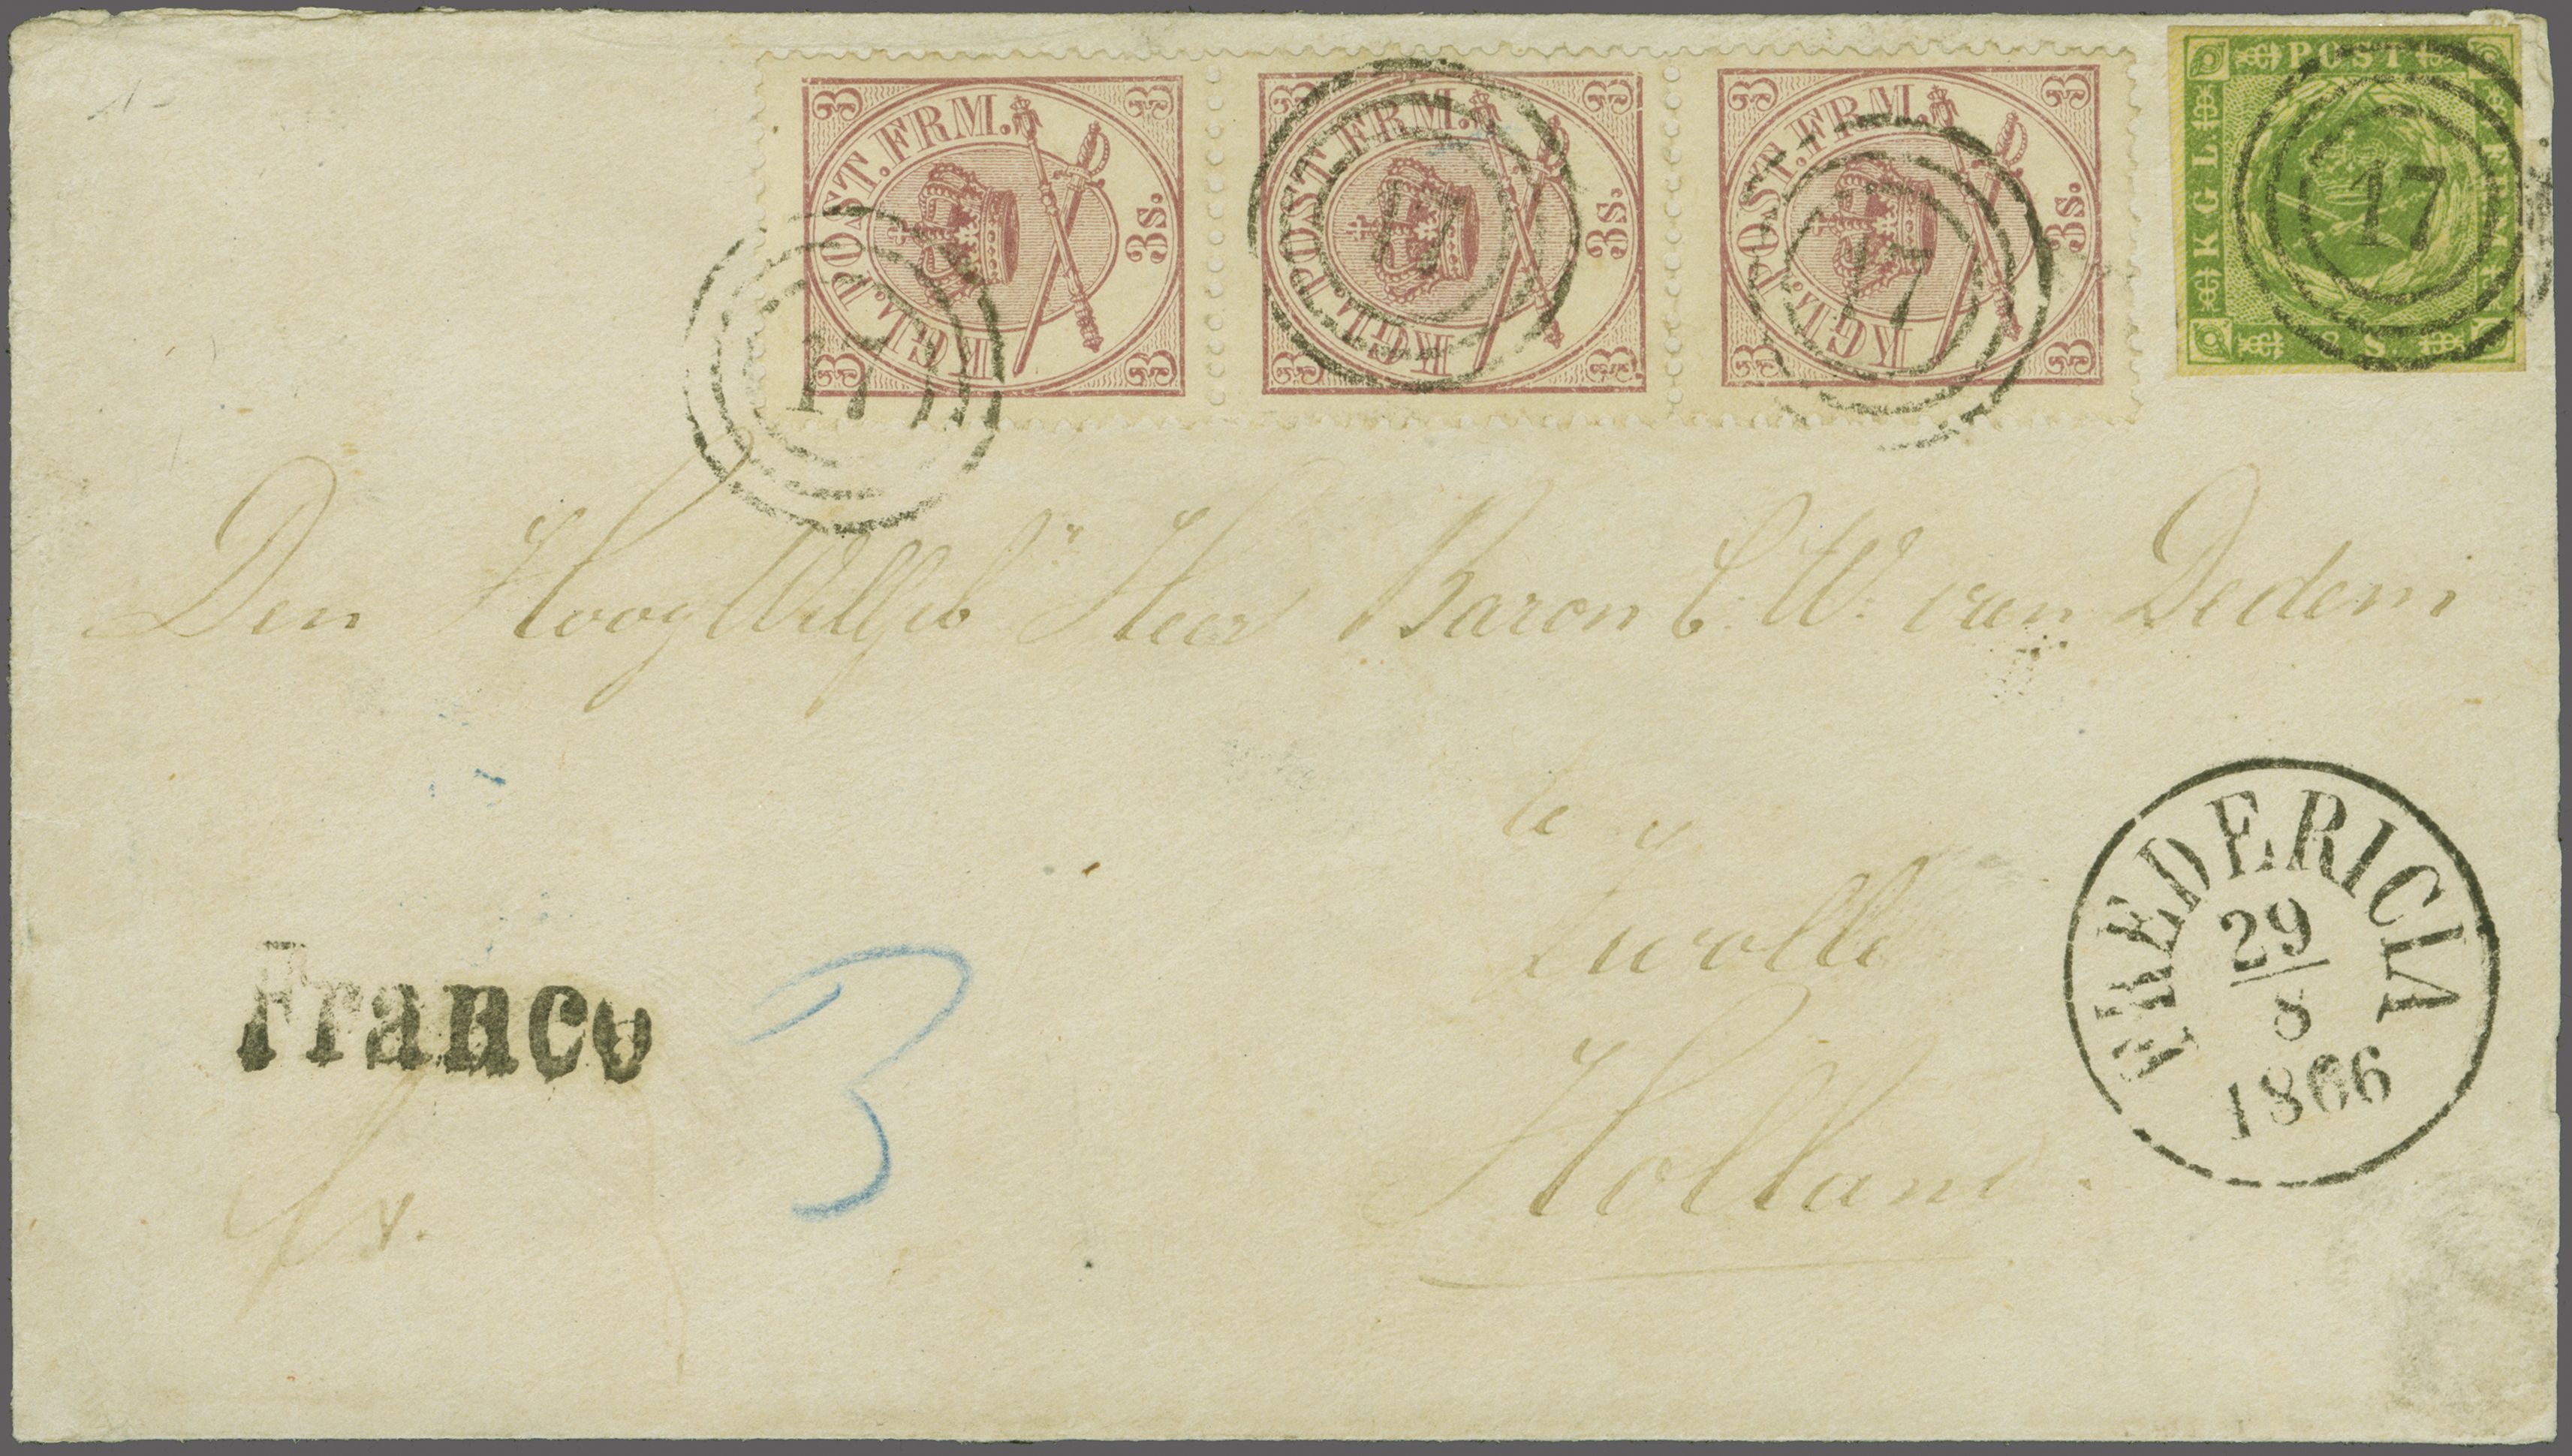 KGL. POST. FRM. 3 S. 3 3 3 3
KGL. POST. FRM. 3 S. 3 3 3 3
KGL. POST. FRM. 3 S. 3 3 3 3
KGL POST FRM 8 S
17
17
17
17
Den HoogWelgeb Heer Baron C. W. van Dedem
te
Zwolle
Holland.
Franco
3
FREDERICIA
29
8
1866